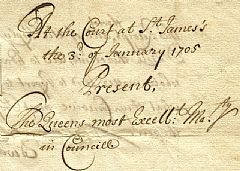 At the Court at St. James's
the 3d. of January 1705
Present,
The Queens most Excellt. Maty
in Councill